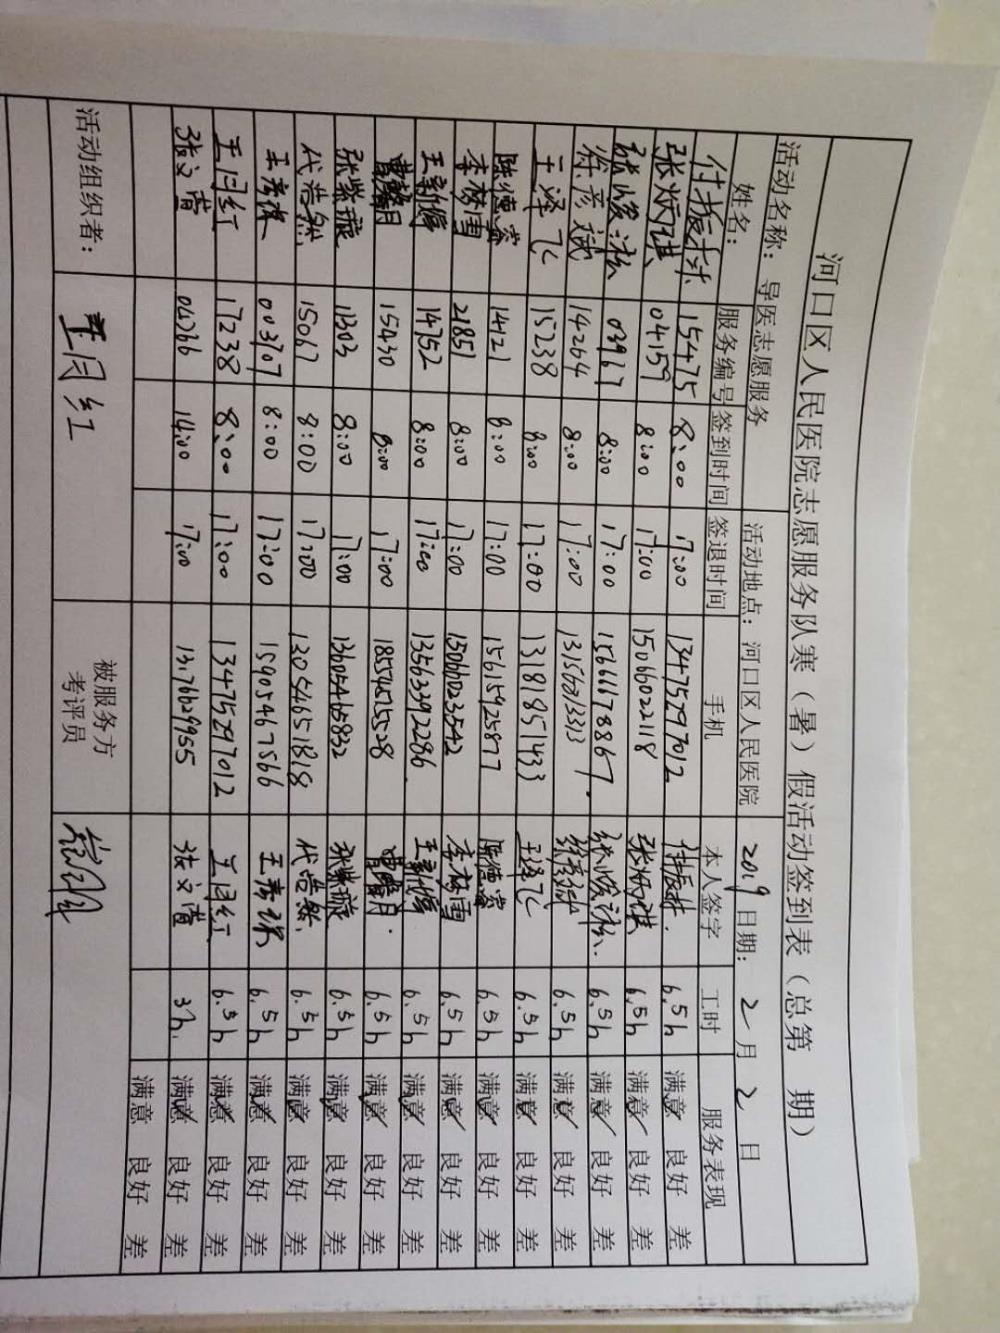 河口区人民医院志愿服务队寒（暑）假活动签到表（总第 期）
活动名称：导医志愿服务 活动地点：河口区人民医院 2019 日期： 2 月 2 日
姓名： 服务编号 签到时间 签退时间 手机 本人签字 工时 服务表现
15475 8:00 17:00 13475297012 6.5h 满意 良好 差
张炳琪 04159 8:00 17:00 15066022118 张炳琪 6.5h 满意 良好 差
03967 8:00 17:00 15666178867 6.5h 满意 良好 差
徐彦斌 14264 8:00 17:00 徐彦斌 6.5h 满意 良好 差
王泽飞 15238 8:00 17:00 13181851433 王泽飞 6.5h 满意 良好 差
陈德鑫 1421 8:00 17:00 15615925877 陈德鑫 6.5h 满意 良好 差
李梦雪 21851 8:00 17:00 15066023542 李梦雪 6.5h 满意 良好 差
14752 8:00 17:00 13563392286 6.5h 满意 良好 差
曹馨月 15430 8:00 17:00 曹馨月 6.5h 满意 良好 差
张紫薇 11303 8:00 17:00 13605465832 张紫薇 6.5h 满意 良好 差
代浩然 15067 8:00 17:00 代浩然 6.5h 满意 良好 差
003707 8:00 17:00 15905467566 6.5h 满意 良好 差
王同红 17238 8:00 17:00 13475297012 王同红 6.5h 满意 良好 差
张文萱 04266 14:00 17:00 13176029955 张文萱 3h 满意 良好 差
满意 良好 差
活动组织者： 王同红 被服务方
考评员